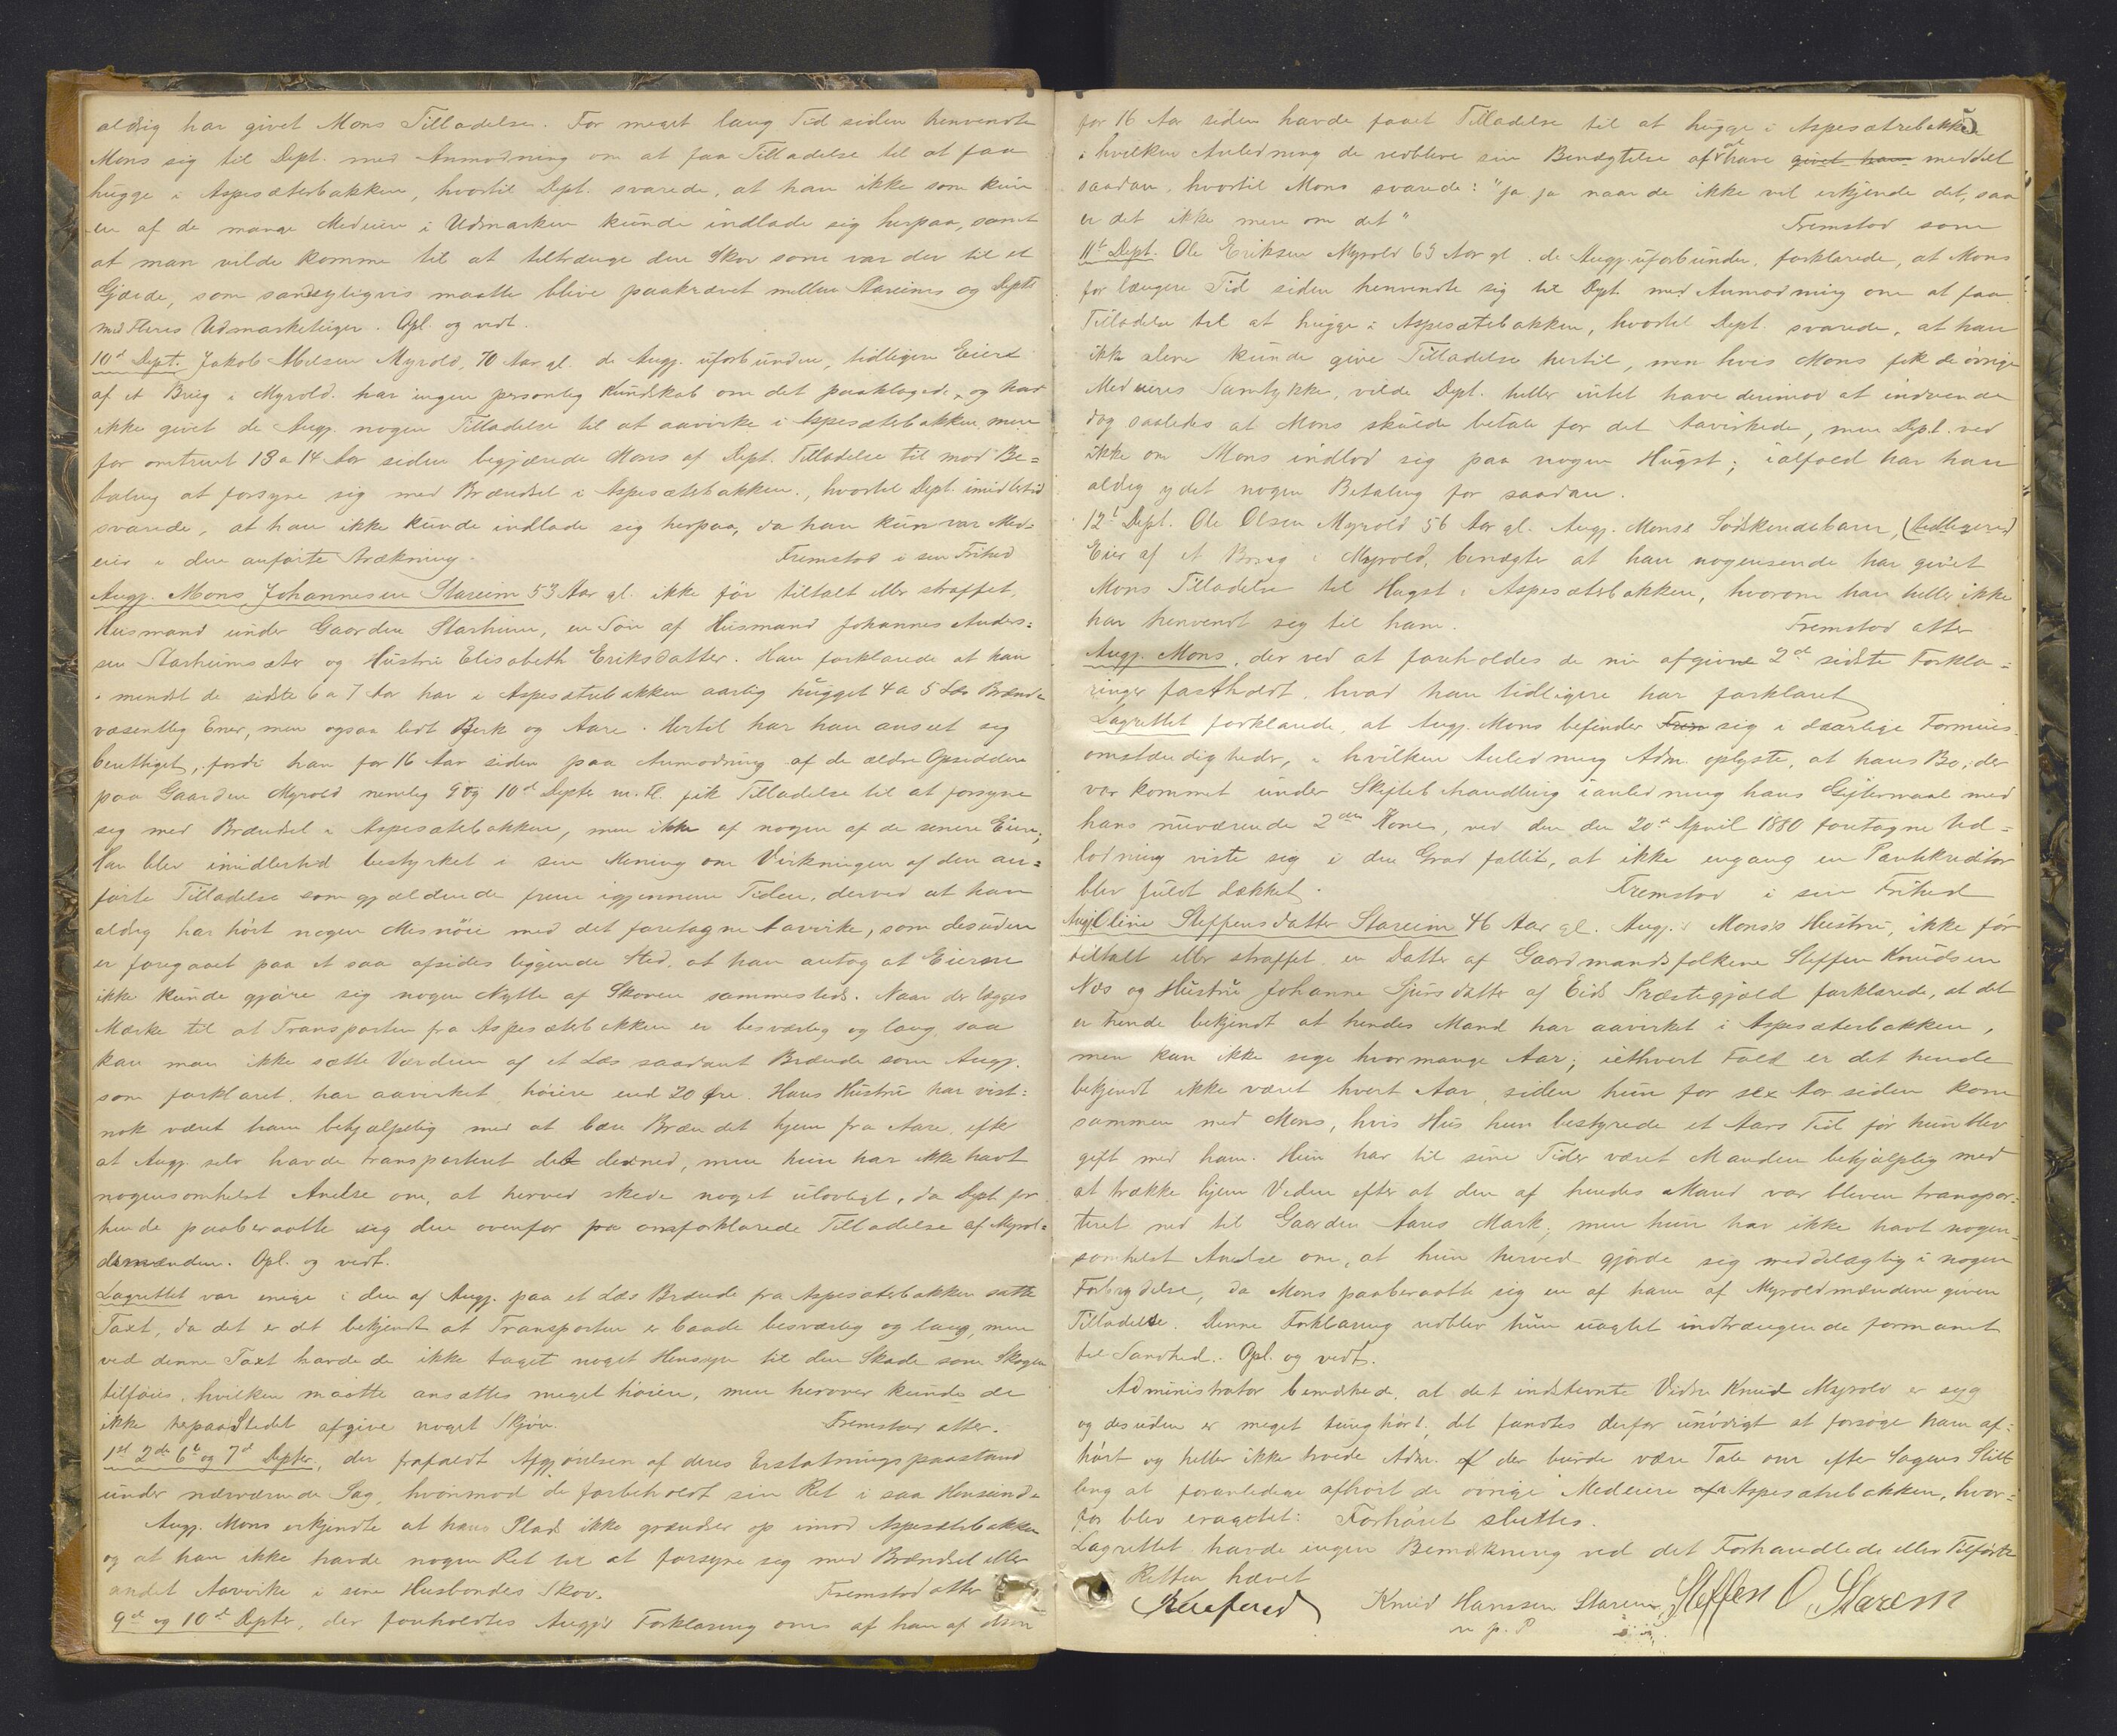 aldrig har givet Mons Tilladelse. For meget lang Tid siden henvendte
Mons sig til Dept. med Anmodning om at faa Tilladelse til at faa
hugge i Aspesæterbakken, hvortil Dept. svarede, at han ikke som kun
en af de mange Medeiere i Udmarken kunde indlade sig herpaa, samt
at man vilde komme til at tiltrænge den Skov som var der til et
Gjærde, som sandsyligvis maatte blive paakrævet mellem Stareims og Depts
med Fleres Udmarksteiger. Opl. og vedt.
10d Dept. Jakob Abelsen Myrold, 70 Aar gl. de Angj. uforbunden, tidligere Eier
af et Brug i Myrold har ingen personlig Kundskab om det paaklagede, og har
ikke givet de Angj. nogen Tilladelse til at aavirke i Aspesæterbakken, men
for omtrent 13 a 14 Aar siden begjærede Mons af Dept. Tilladelse til mod Be=
taling at forsyne sig med Brændsel i Aspesæterbakken, hvortil Dept. imidlertid
svarede, at han ikke kunde indlade sig herpaa, da han kun var Med=
eier i den anførte Strækning. Fremstod i sin Frihed
Angj. Mons Johannesen Stareim 53 Aar gl. ikke før tiltalt eller straffet,
Husmand under Gaarden Starheim, en Søn af Husmand Johannes Anders=
sen Starheimsæter og Hustru Elisabeth Eriksdatter. Han forklarede at han
i mindst de sidste 6 a 7 Aar har i Aspesæterbakken aarlig hugget 4 a 5 Læs Brænde
væsentlig Ener, men ogsaa lidt Birk og Aare. Hertil har han anseet sig
berettiget, fordi han for 16 Aar siden paa Anmodning af de ældre Opsiddere
paa Gaarden Myrold nemlig 9d og 10d Depter m. Fl. fik Tilladelse til at forsyne
sig med Brændsel i Aspesæterbakken, men ikke af nogen af de senere Eiere;
Han blev imidlertid bestyrket i sin Mening om Virkningen af den an=
førte Tilladelse som gjældende frem igjennem Tiden, derved at han
aldrig har hørt nogen Misnöie med det foretagne Aavirke, som desuden
er foregaaet paa et saa afsides liggende Sted, at han antog at Eierne
ikke kunde gjøre sig nogen Nytte af Skoven sammesteds. Naar der lægges
Mærke til at Transporten fra Aspesæterbakken er besværlig og lang, saa
kan man ikke sætte Værdien af et Læs saadant Brænde som Angj.
som forklaret, har aavirket, høiere end 20 Øre. Hans Hustru har vist=
nok været ham behjælpelig med at bære Brændet hjem fra Aare, efter
at Angj. selv havde transporteret det derned, men hun har ikke havt
nogensomhelst Anelse om, at herved skede noget ulovligt, da Dept. for
hende paaberaabte sig den ovenfor omforklarede Tilladelse af Myrol=
dsmænden. Opl. og vedt.
Lagrettet var enige i den af Angj. paa et Læs Brænde fra Aspesæterbakken satte
Taxt, da det er det bekjendt at Transporten er baade besværlig og lang, men
ved denne Taxt havde de ikke taget noget Hensyn til den Skade som Skogen
tilføies, hvilken maatte ansættes meget høiere, men herover kunde de
ikke herpaa Stedet afgive noget Skjøn. Fremstod atter.
1st 2de 6t og 7d Depter, der frafaldt Afgjørelsen af deres Erstatningspaastand
under nærværende Sag, hvorimod de forbeholdt sin Ret i saa Henseende
Angj. Mons erkjendte at hans Plads ikke grændser op imod Aspesæterbakken
og at han ikke havde nogen Ret til at forsyne sig med Brændsel eller
andet Aavirke i sin Husbondes Skov. Fremstod atter
9d og 10d Depter, der foreholdtes Angj's Forklaring om af ham af dem
5
for 16 Aar siden havde faaet Tilladelse til at hugge i Aspesæterbakken
i hvilken Anledning de vedbleve sin Benægtelse af at have givet ham meddelt
saadan, hvortil Mons svarede: "ja ja naar de ikke vil erkjende det, saa
er det ikke mere om det" Fremstod som
11t Dept. Ole Eriksen Myrold 63 Aar gl. de Angj. uforbunden, forklarede, at Mons
for længere Tid siden henvendte sig til Dept. med Anmodning om at faa
Tilladelse til at hugge i Aspesæterbakken, hvortil Dept. svarede, at han
ikke alene kunde give Tilladelse hertil, men hvis Mons fik de øvrige
Medeieres Samtykke, vilde Dept. heller intet have derimod at indvende
dog saaledes at Mons skulde betale for det Aavirkede, men Dept. ved
ikke om Mons indlod sig paa nogen Hugst; ialfald har han
aldrig ydet nogen Betaling for saadan.
12t Dept. Ole Olsen Myrold 56 Aar gl. Angj. Mons's Sødskendebarn, (tidligere)
Eier af et Brug i Myrold, benægte at han nogensinde har givet
Mons Tilladelse til Hugst i Aspesæterbakken, hvorom han heller ikke
har henvendt sig til ham. Fremstod atter
Angj. Mons, der ved at foreholdes de nu afgivne 2de sidste Forkla=
ringer fastholdt, hvad han tidligere har forklaret
Lagrettet forklarede, at Angj. Mons befinder Frem sig i daarlige Formues
omstændigheder, i hvilken Anledning Adm. oplyste, at hans Bo, der
var kommet under Skiftebehandling i anledning hans Giftermaal med
hans nuværende 2den Kone, ved den den 20d April 1880 foretagne Ud=
lodning viste sig i den Grad fallit, at ikke engang en Pantkreditor
blev fuldt dækket. Fremstod i sin Frihed
Angj. Oline Steffensdatter Stareim 46 Aar gl. Angj. Mons's Hustru, ikke før
tiltalt eller straffet, en Datter af Gaardmandsfolkene Steffen Knudsen
Nos og Hustru Johanne Sjursdatter af Eids Præstegjæld forklarede, at det
er hende bekjendt at hendes Mand har aavirket i Aspesæterbakken,
men kan ikke sige hvormange Aar; iethvert Fald er det hende
bekjendt ikke været hvert Aar, siden hun for sex Aar siden kom
sammen med Mons, hvis Hus hun bestyrede et Aars Tid før hun blev
gift med ham. Hun har til sine Tider været Manden behjælplig med
at trække hjem Veden efter at den af hendes Mand var bleven transpor=
teret ned til Gaarden Aares Mark; men hun har ikke havt nogen=
somhelst Anelse om, at hun herved gjorde sig meddelagtig i nogen
Forbrydelse, da Mons paaberaabte sig en af ham af Myroldmændene given
Tilladelse. Denne Forklaring vedblev hun uagtet indtrængende formanet
til Sandhed. Opl. og vedt.
Administrator bemærkede, at det indstevnte Vidne Knud Myrold er syg
og desuden er meget tunghørt; det fandtes derfor unödigt at forsøge ham af=
hørt og heller ikke troede Adm. at der burde være Tale om efter Sagens Stil
ling at foranledige afhørt de övrige Medeiere af Aspesæterbakken, hvor=
for blev eragtet: Forhøret sluttes.
Lagrettet havde ingen Bemærkning ved det Forhandlede eller Tilførte
Retten hævet
Knud Hanssen Stareim, Steffen O. Starem
m. p. P